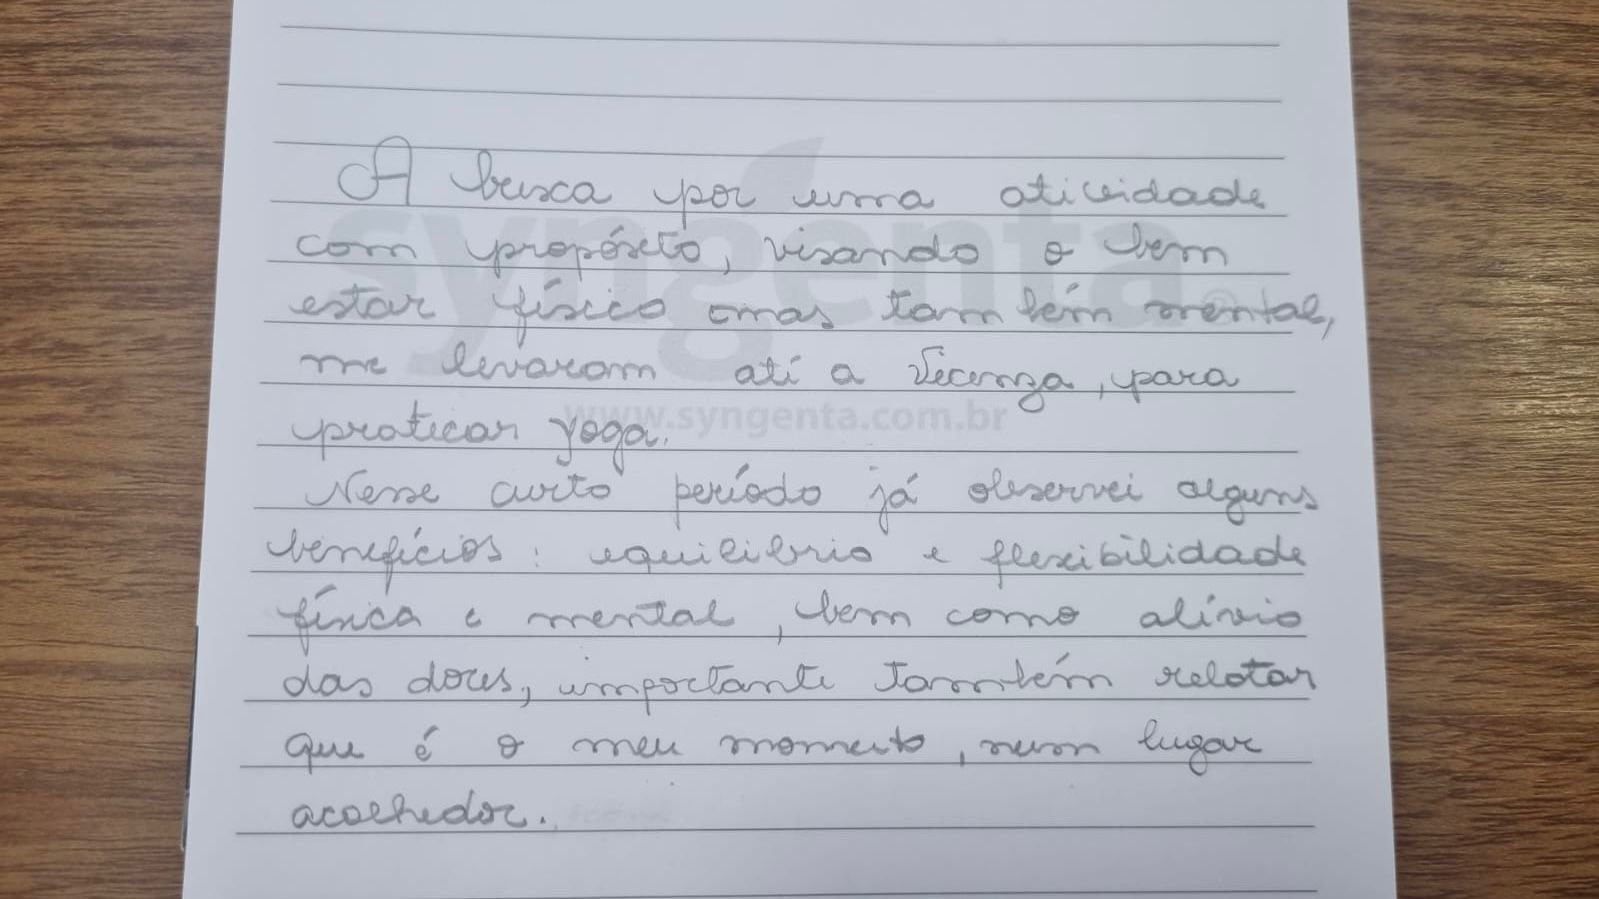 A busca por uma atividade
com propósito, visando o bem
estar físico mas também mental,
me levaram até a Vicenza, para
praticar yoga.
Nesse curto período já observei alguns
benefícios: equilibrio e flexibilidade
física e mental, bem como alívio
das dores, importante também relatar
que é o meu momento, num lugar
acolhedor.
syngenta
www.syngenta.com.br